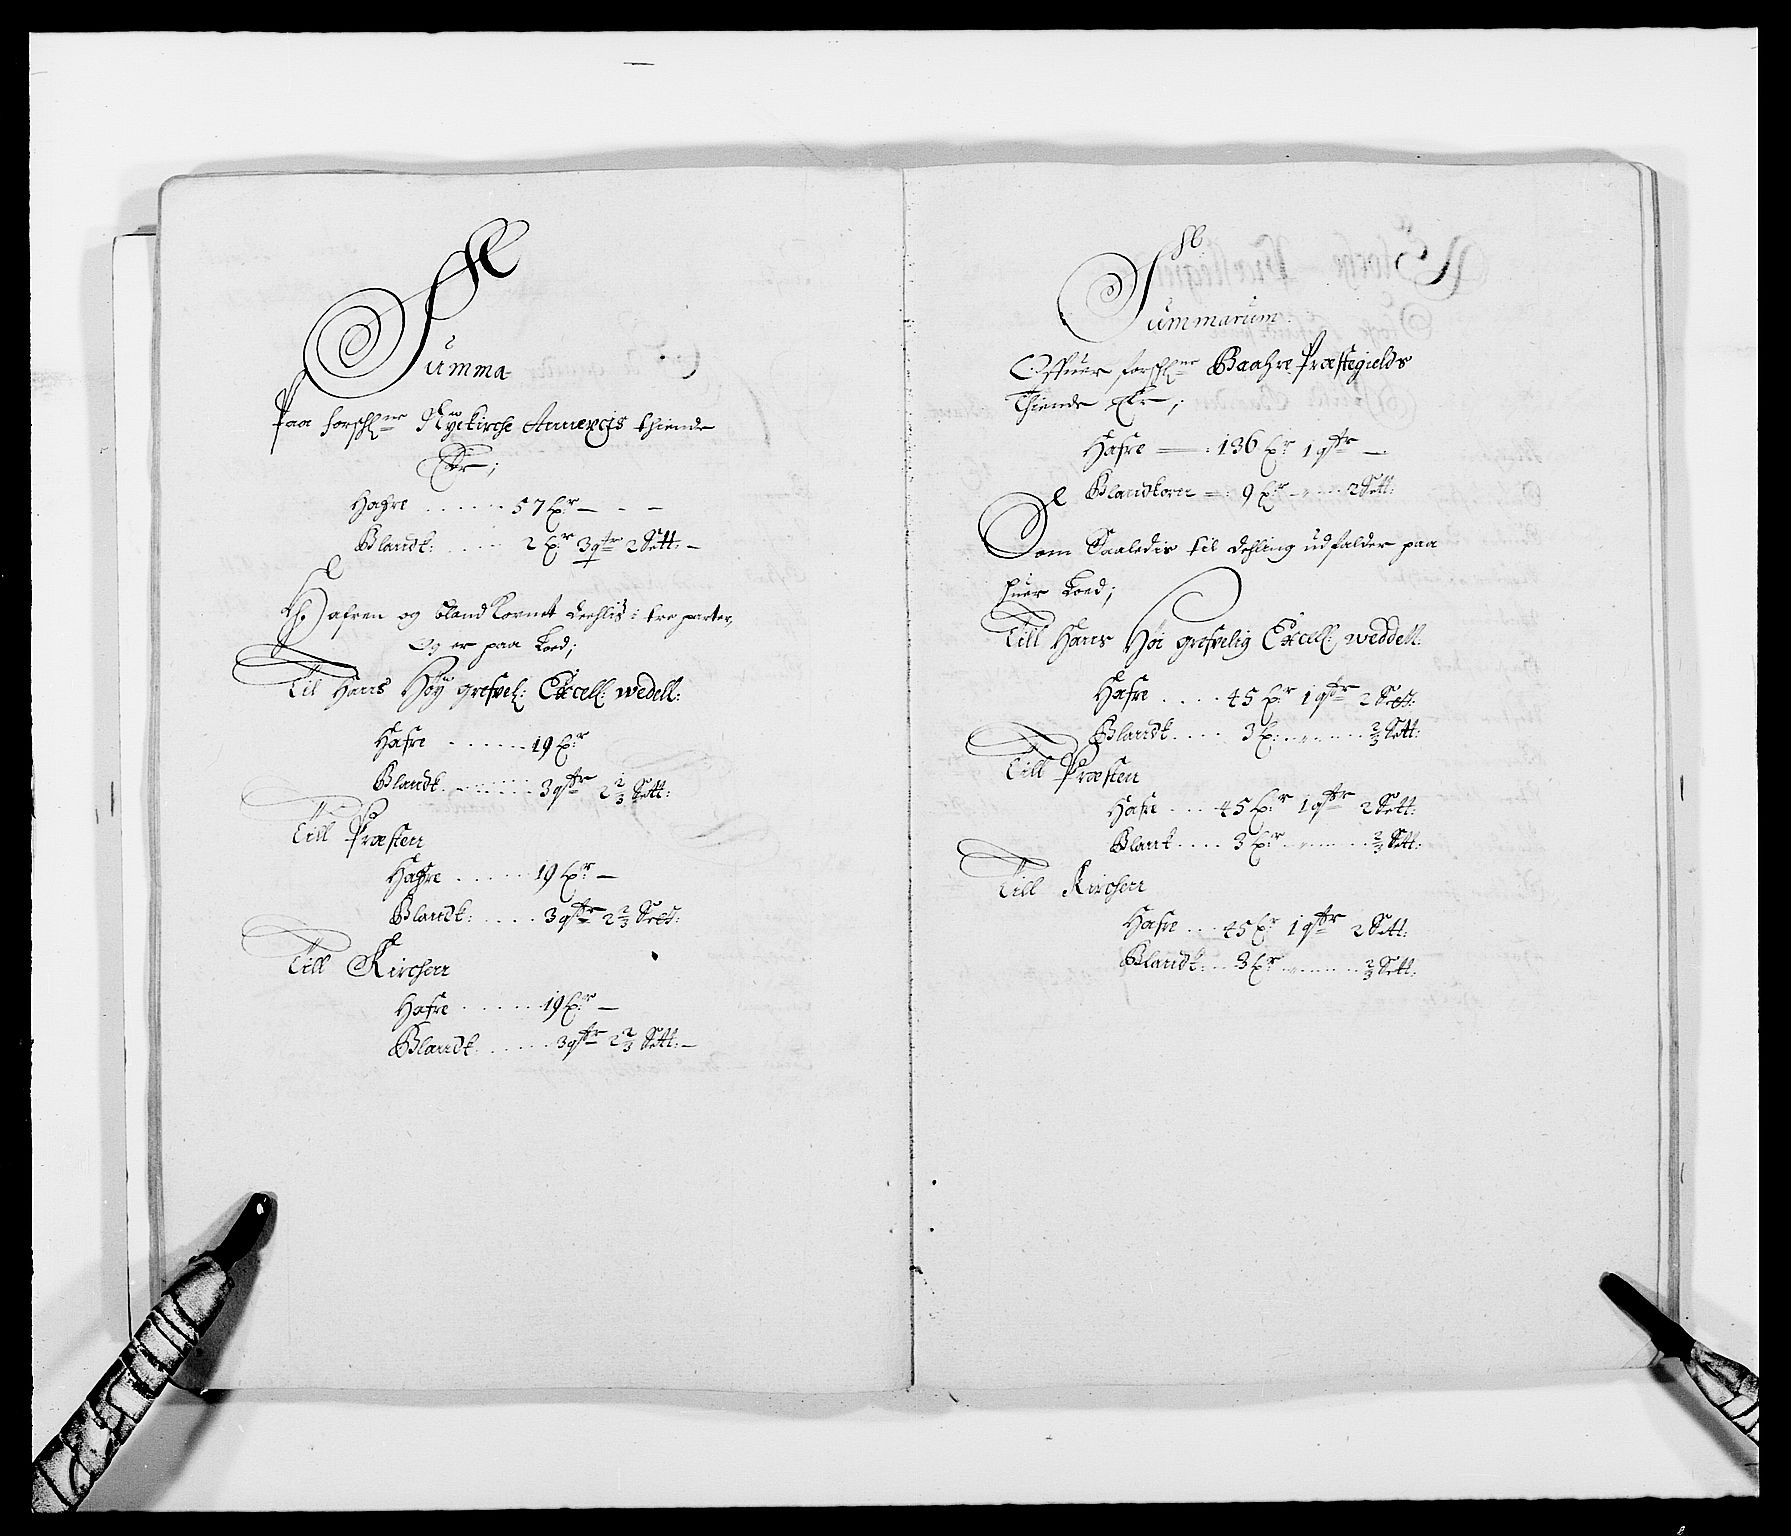 Summa
Paa forschl:ne Nyekirche Annexes thiende
Er;
Hafre ...... 57 Er — - —
Blandk: ..... 2 Er 3 qtr 2 Sett: —
Hafren og bland Kornet deehlis i tre parter,
Og er paa Loed;
Til Hans Höy grefvel: Excell: wedell:
Hafre ...... 19 Er
Blandk ....... 3 qtr 2 2/3 Sett:
Till Præsten
Hafre ..... 19 Er —
Blandk: ..... 3 qtr 2 2/3 Sett:
Till Kirchen
Hafre ...... 19 Er —
Blandk: ...... 3 qtr 2 2/3 Sett: —
Summarum
Offuer forschl:ne Baahre Præstegields
Thiende Er;
Hafre — : 136 Er 1 qtr —
Blandkorn — : 9 Er ..... 2 Sett:
Som Saaledis til dehling udfalder paa
huer Loed;
Till Hans Höi grefvelig Excell: weddell:
Hafre .... 45 Er 1 qtr 2 Sett:
Blandk .... 3 E: ...... 2/3 Sett:
Till Præsten
Hafre .... 45 Er 1 qtr 2 Sett:
Blant .... 3 Er ...... 2/3 Sett:
Till Kirchen
Hafre ... 45 Er 1 qtr 2 Sett:
Blandk: .. 3 Er ...... 2/3 Sett: